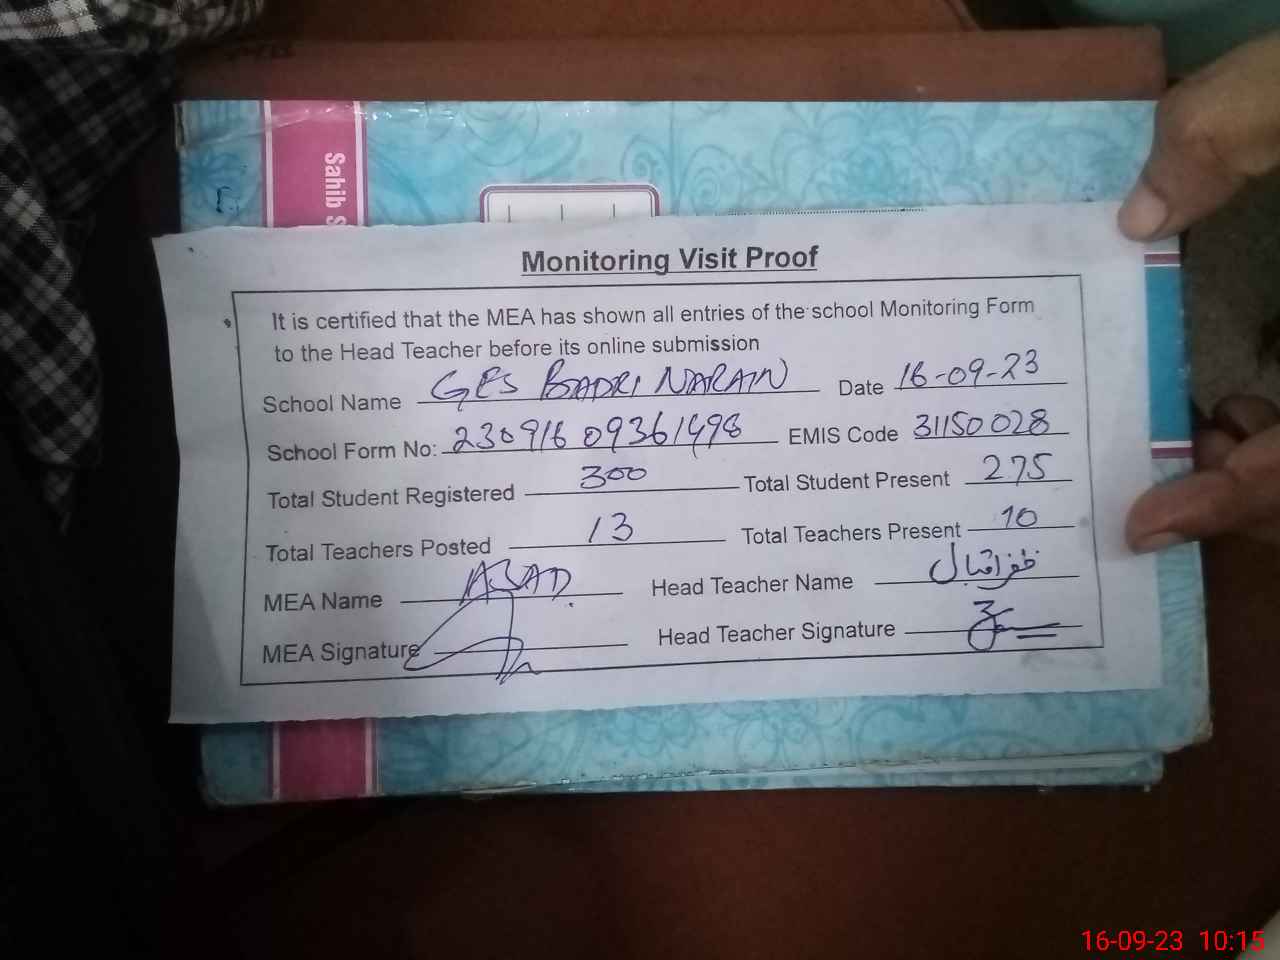 Sahib S
Monitoring Visit Proof
It is certified that the MEA has shown all entries of the school Monitoring Form
to the Head Teacher before its online submission
School Name GES BADRI NARAIN Date 16-09-23
School Form No: 230916 09361498 EMIS Code 31150028
Total Student Registered 300 Total Student Present 275
Total Teachers Posted 13 Total Teachers Present 10
MEA Name ASAD. Head Teacher Name ظفر اقبال
MEA Signature Head Teacher Signature
16-09-23 10:15